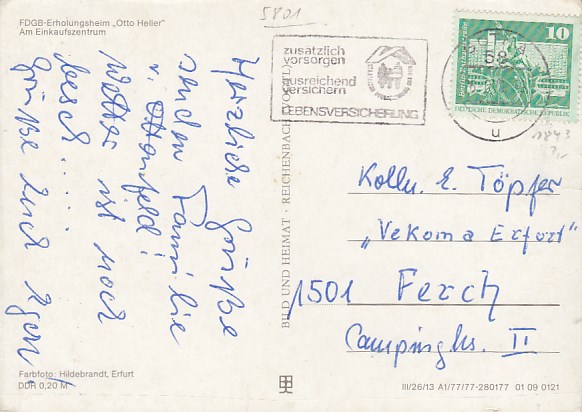 FDGB-Erholungsheim „Otto Heller"
Am Einkaufszentrum
5801
zusätzlich
vorsorgen
ausreichend
versichern
LEBENSVERSICHERUNG
10
DEUTSCHE DEMOKRATISCHE REPUBLIK
58
u
Herzliche Grüße
senden Familie
v.
Wetter ist noch
besch.....
Grüße auch
BILD UND HEIMAT · REICHENBACH (VOGTL)
Kolln. E. Töpfer
„Vekoma Erfurt"
1501 Ferch
Campinghs. II
Farbfoto: Hildebrandt, Erfurt
DDR 0,20 M
III/26/13 A1/77/77-280177 01 09 0121